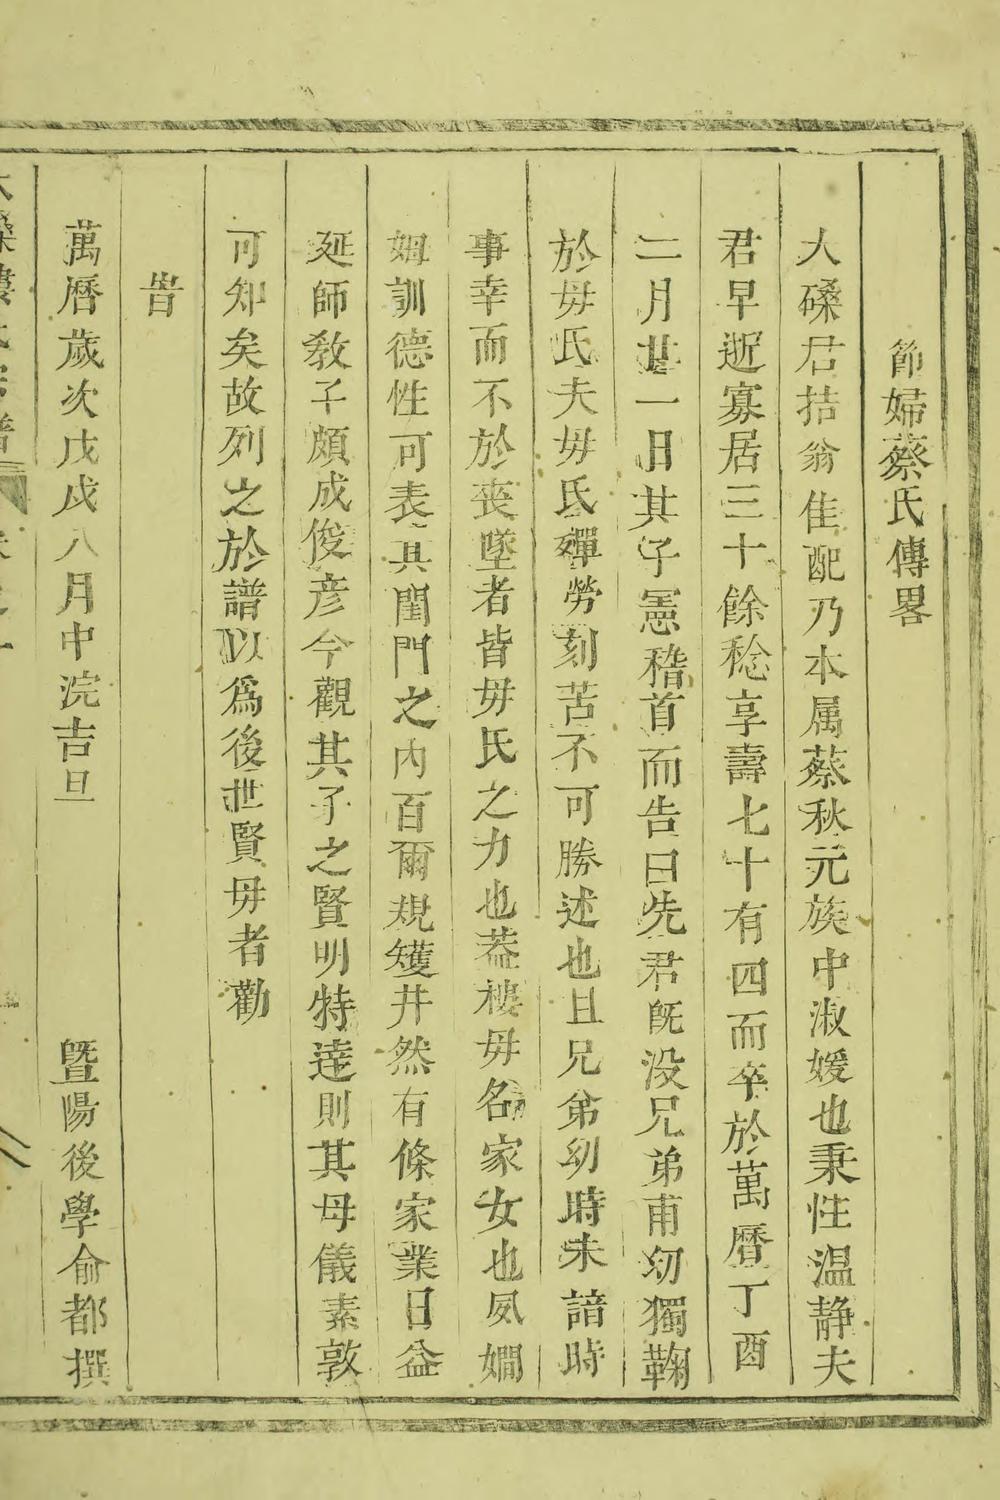 節婦蔡氏傳畧
大磉居拮翁佳配乃本属蔡秋元族中淑媛也秉性温静夫
君早逝寡居三十餘稔享壽七十有四而卒於萬曆丁酉
二月廿一日其子憲稽首而告曰先君旣没兄弟甫㓜獨鞠
於毋氏夫毋氏殫勞刻苦不可勝述也且兄弟㓜時未諳時
事幸而不於喪墜者皆毋氏之力也葢樓毋名家女也夙嫻
姆訓德性可表其閨門之内百爾規矱井然有條家業日益
延師敎子頗成俊彦今觀其子之賢明特達則其母儀素敦
可知矣故列之於譜以爲後世賢毋者勸
旹
萬曆歲次戊戌八月中浣吉旦 曁陽後學俞都撰